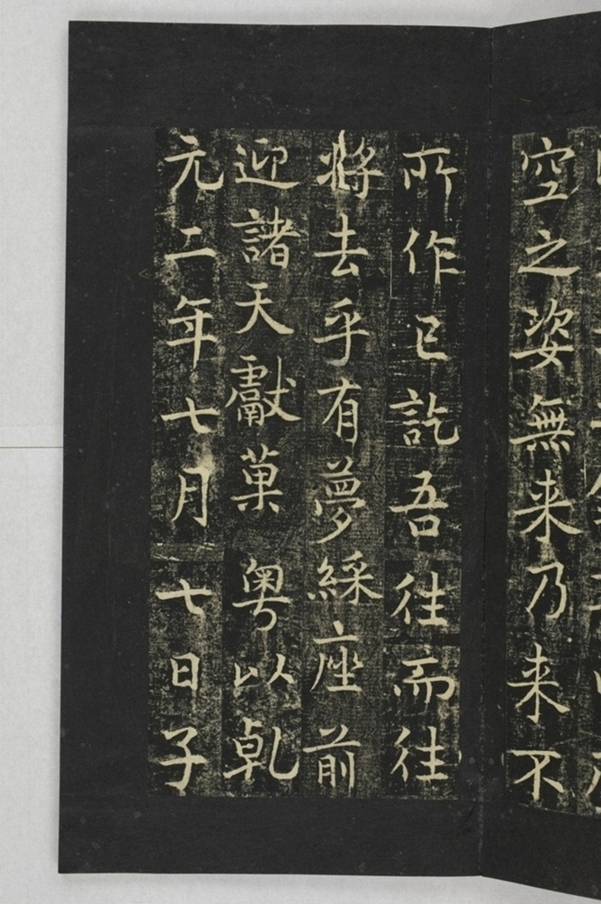 空之姿無来乃来不
所作已訖吾往而往
将去乎有夢綵座前
迎諸天獻菓粤以乹
元二年七月七日子